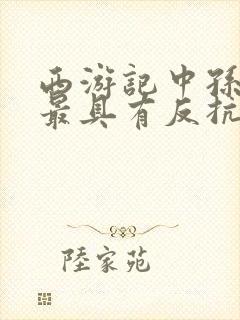 西游記中孫
最具有反抗
陸家苑